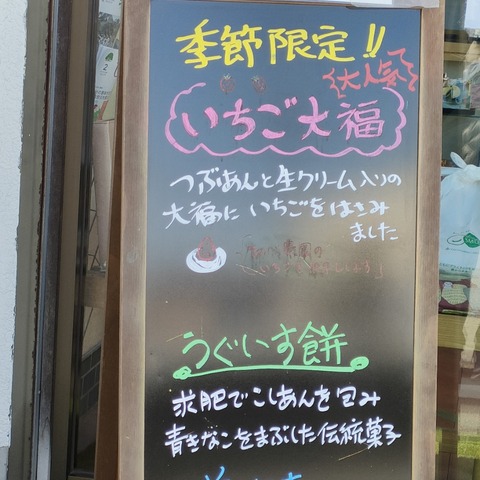 季節限定!!
大人気
いちご大福
つぶあんと生クリーム入りの
大福に いちごをはさみ
ました
うぐいす餅
求肥でこしあんを包み
青きなこをまぶした伝統菓子